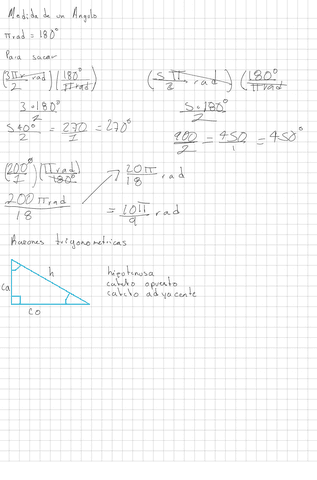 Medida de un Angulo
πrad = 180°
Para sacar
(3π/2 rad) (180°/πrad)
3·180°/2
540°/2 = 270/1 = 270°
(5π/2 rad) (180°/πrad)
5·180°/2
900/2 = 450/1 = 450°
(200°/1) (πrad/180°)
200πrad/18
20π/18 rad
= 10π/9 rad
Razones trigonometricas
h
ca
co
hipotenusa
cateto opuesto
cateto adyacente